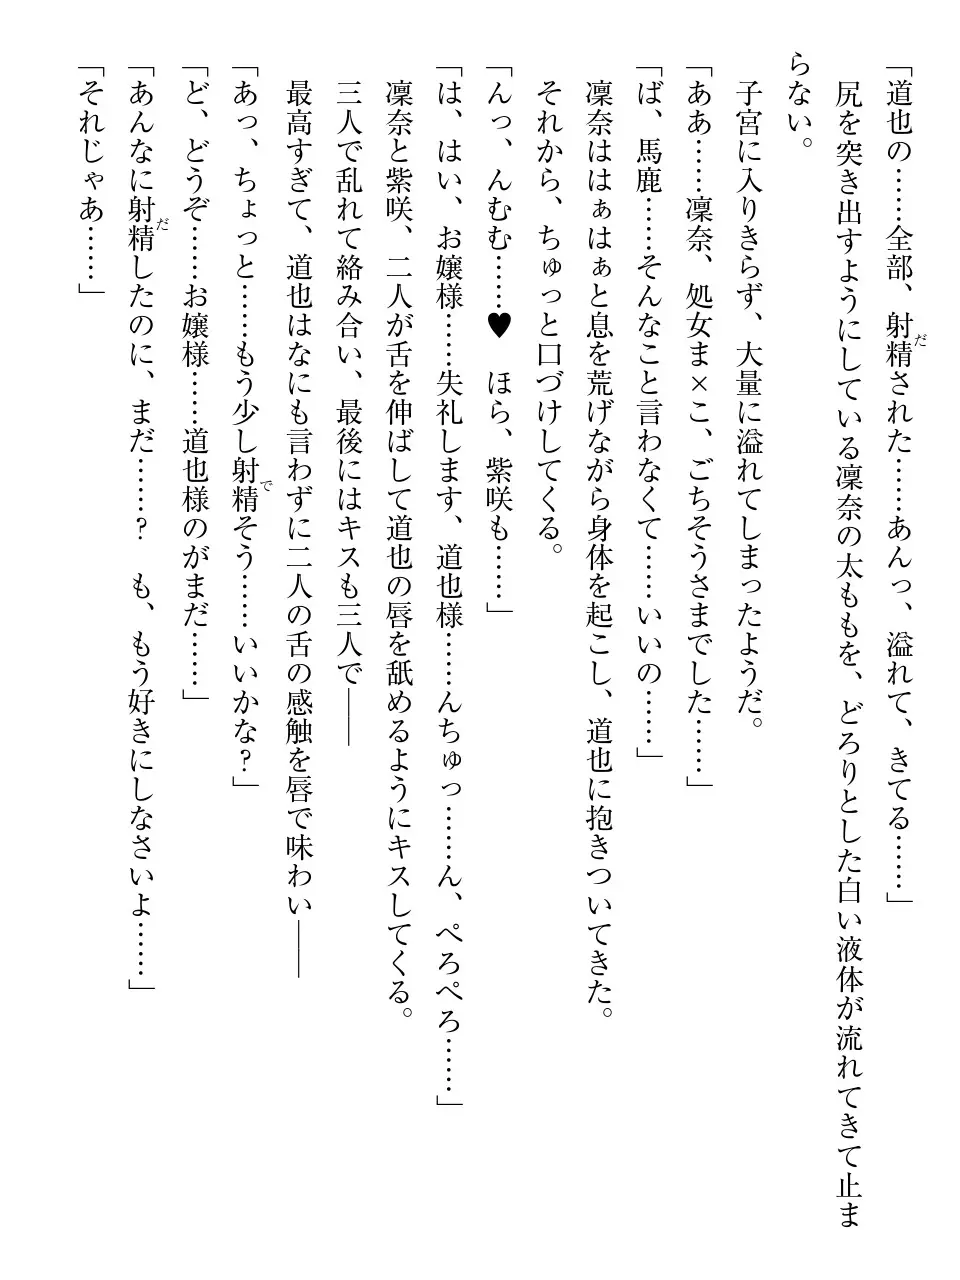 「道也の……全部、射精された……あんっ、溢れて、きてる……」
だ
尻を突き出すようにしている凜奈の太ももを、どろりとした白い液体が流れてきて止ま
らない。
子宮に入りきらず、大量に溢れてしまったようだ。
「ああ……凜奈、処女ま×こ、ごちそうさまでした……」
「ば、馬鹿……そんなこと言わなくて……いいの……」
凜奈ははぁはぁと息を荒げながら身体を起こし、道也に抱きついてきた。
それから、ちゅっと口づけしてくる。
「んっ、んむむ……♥　ほら、紫咲も……」
「は、はい、お嬢様……失礼します、道也様……んちゅっ……ん、ぺろぺろ……」
凜奈と紫咲、二人が舌を伸ばして道也の唇を舐めるようにキスしてくる。
三人で乱れて絡み合い、最後にはキスも三人で――
最高すぎて、道也はなにも言わずに二人の舌の感触を唇で味わい――
「あっ、ちょっと……もう少し射精そう……いいかな？」
で
「ど、どうぞ……お嬢様……道也様のがまだ……」
「あんなに射精したのに、まだ……？　も、もう好きにしなさいよ……」
だ
「それじゃあ……」